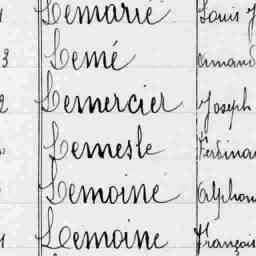 Lemarié Louis
3 Lemé Armand
2 Lemercier Joseph
Lemesle Ferdinan
Lemoine Alphon
Lemoine François